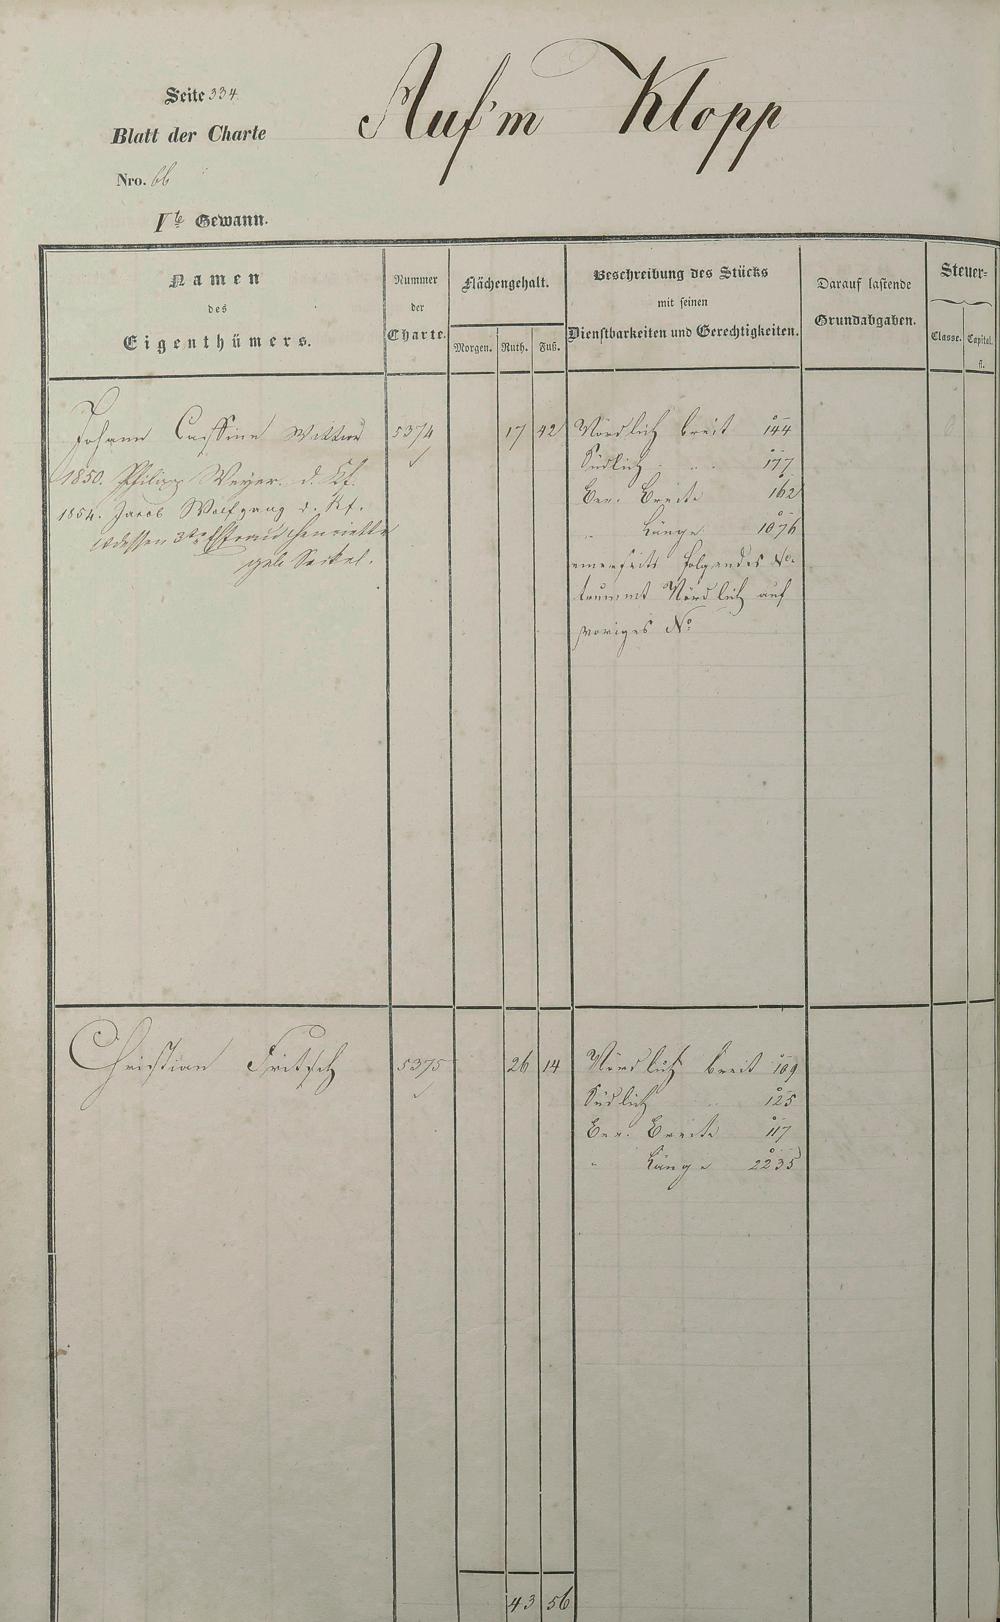 Seite 334
Auf'm Klopp
Blatt der Charte
Nro. 66
Ite Gewann.
Namen
des
Eigenthümers.
Nummer
der
Charte.
Flächengehalt.
Morgen. Ruth. Fuß.
Beschreibung des Stücks
mit seinen
Dienstbarkeiten und Gerechtigkeiten.
Darauf lastende
Grundabgaben.
Steuer-
Classe. Capital.
fl.
Johann Wittwe 5374 17 42 Nördlich breit 144
Südlich 177
1850. Philipp Weyer. d. Kf.
Ber. Breite 162
1854. Jacob Wolfgang d. Kf.
" Länge 1076
dessen 3te Ehefrau Henriette
geb. Seikel.
einerseits folgendes No.
Nördlich auf
voriges No
Christian Fritsch 5375 26 14 Nördlich breit 109
Südlich 125
Ber. Breite 117
" Länge 2235
43 56